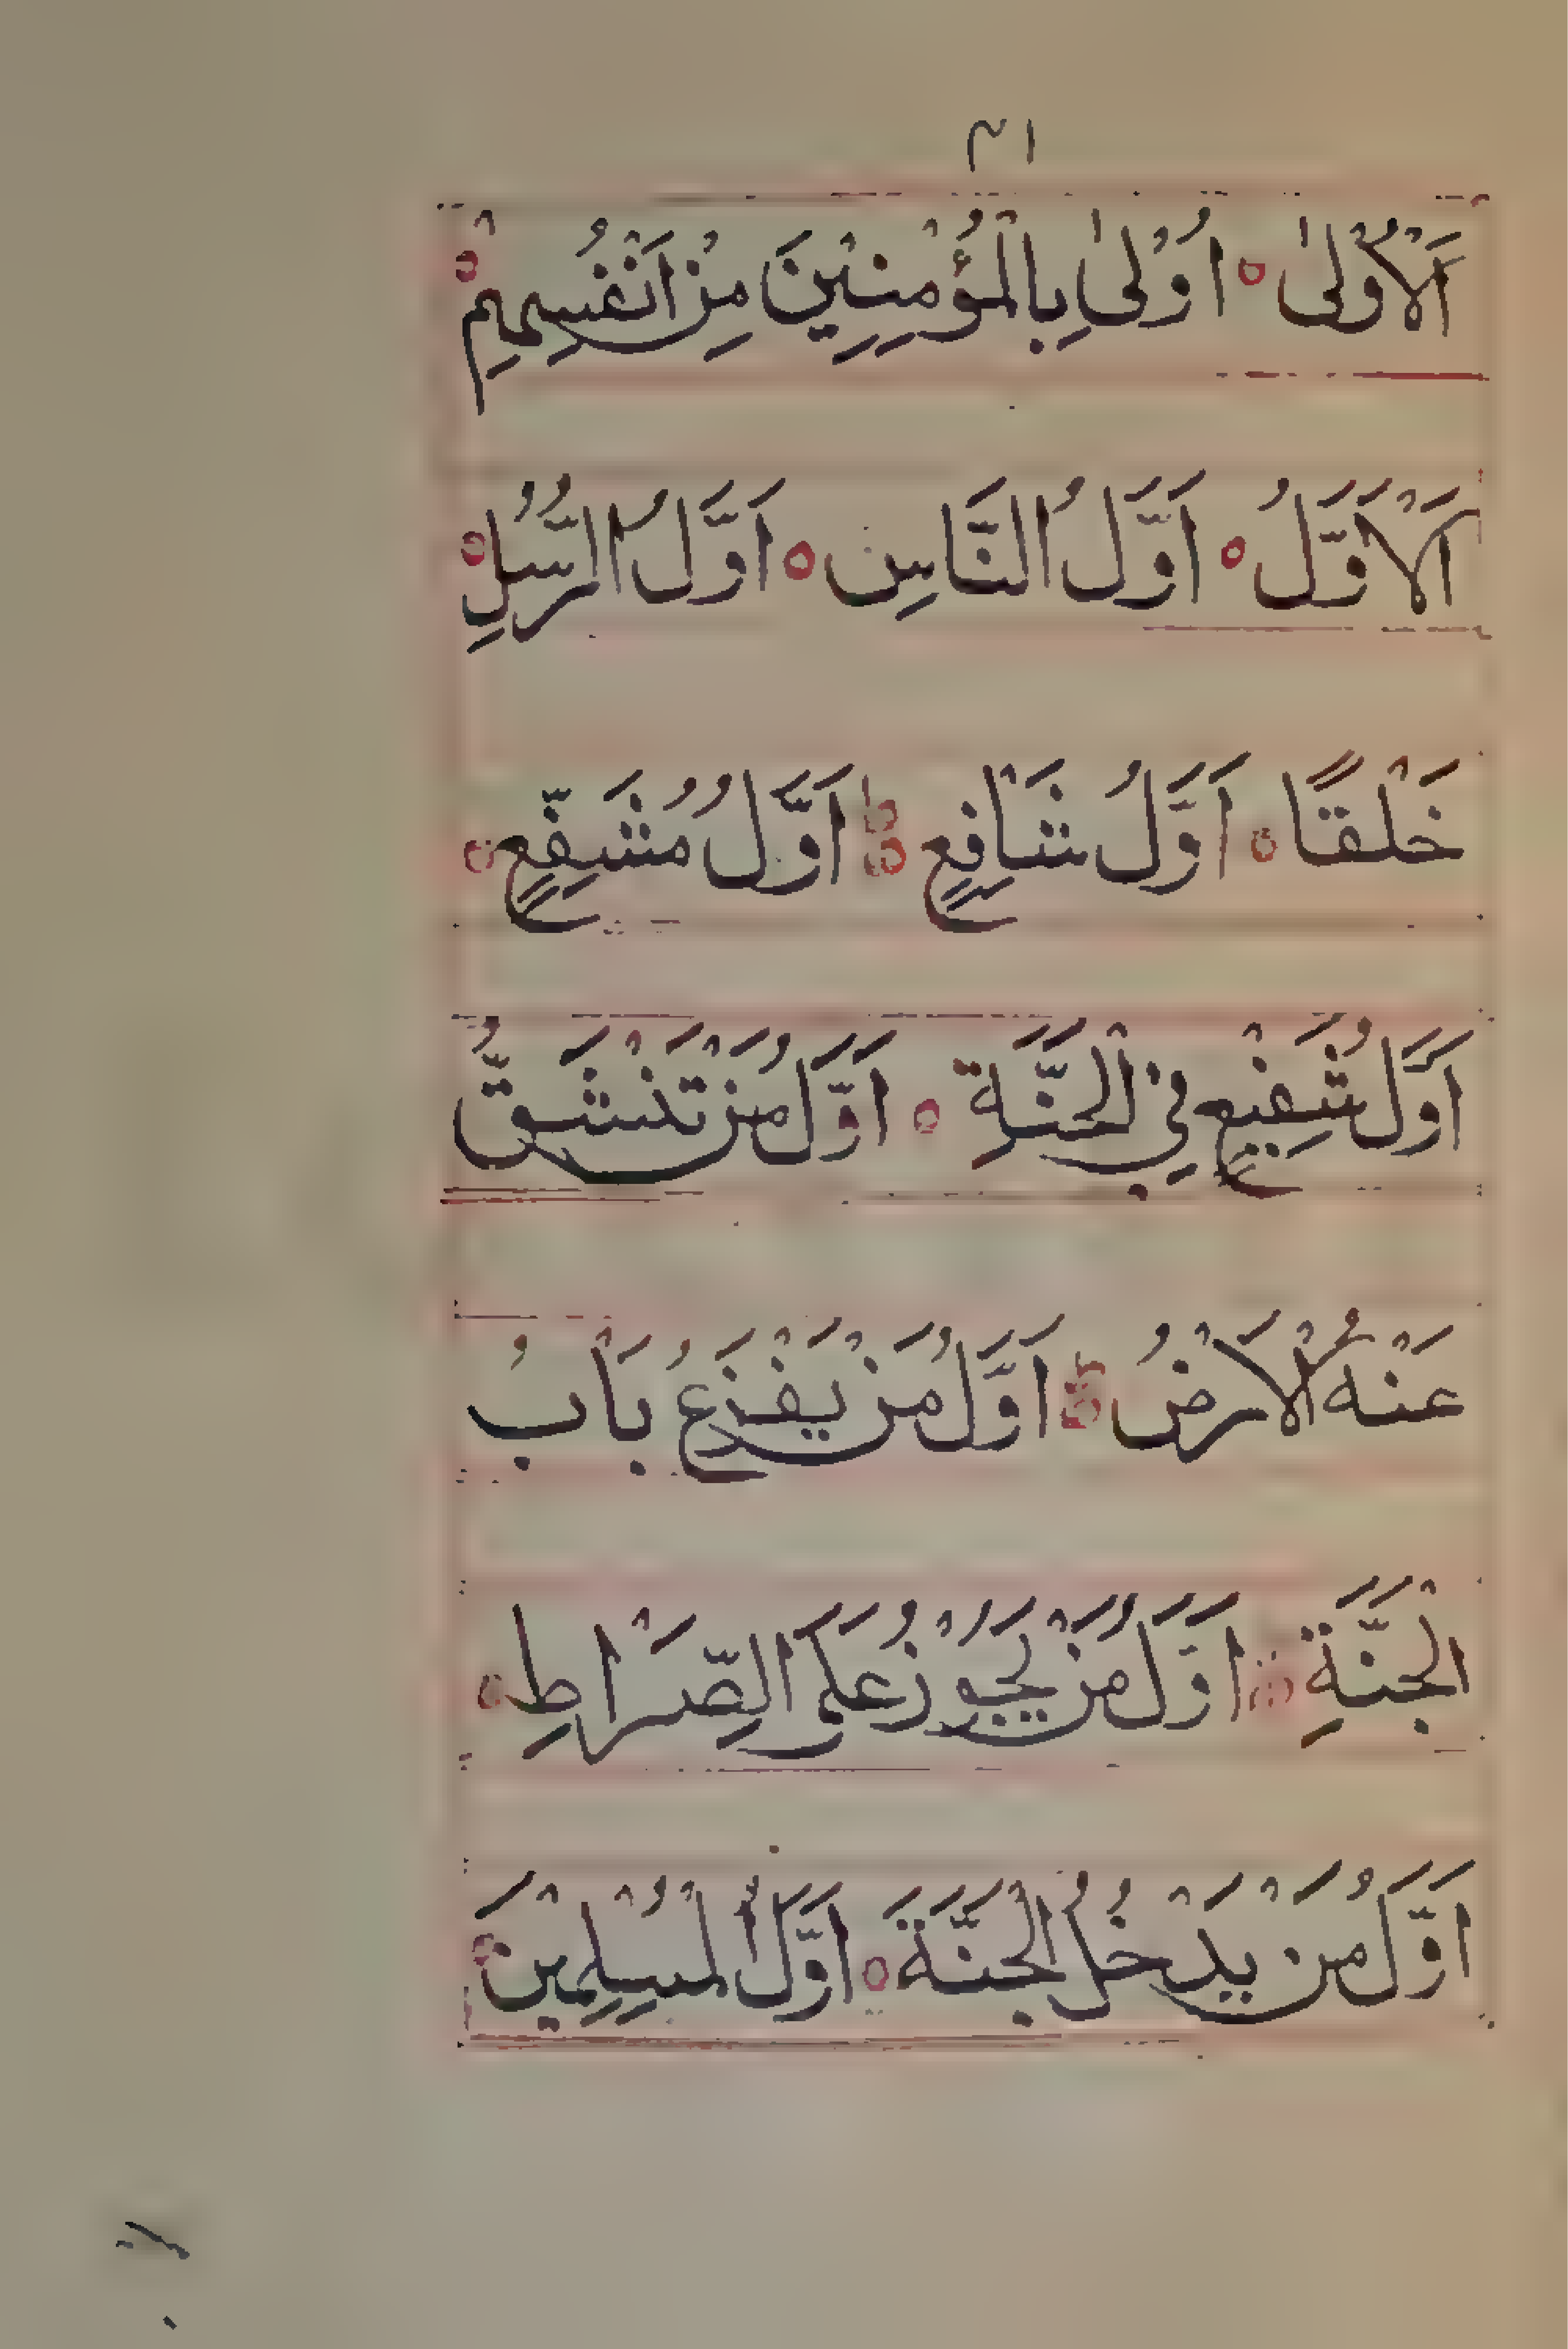 ١٣
اَلْاَوْلٰى ٥ اَوْلٰى بِالْمُؤْمِنِيْنَ مِنْ اَنْفُسِهِمْ ٥
اَلْاَوَّلُ ٥ اَوَّلُ النَّاسِ ٥ اَوَّلُ الرُّسُلِ ٥
خَلْقًا ٥ اَوَّلُ شَافِعٍ ٥ اَوَّلُ مُشَفَّعٍ ٥
اَوَّلُ شَفِيْعٍ فِي الْجَنَّةِ ٥ اَوَّلُ مَنْ تَنْشَقُّ
عَنْهُ الْاَرْضُ ٥ اَوَّلُ مَنْ يَفْزَعُ بَابُ
الْجَنَّةِ ٥ اَوَّلُ مَنْ يَجُوْزُ عَلَى الصِّرَاطِ ٥
اَوَّلُ مَنْ يَدْخُلُ الْجَنَّةَ ٥ اَوَّلُ الْمُسْلِمِيْنَ ٥